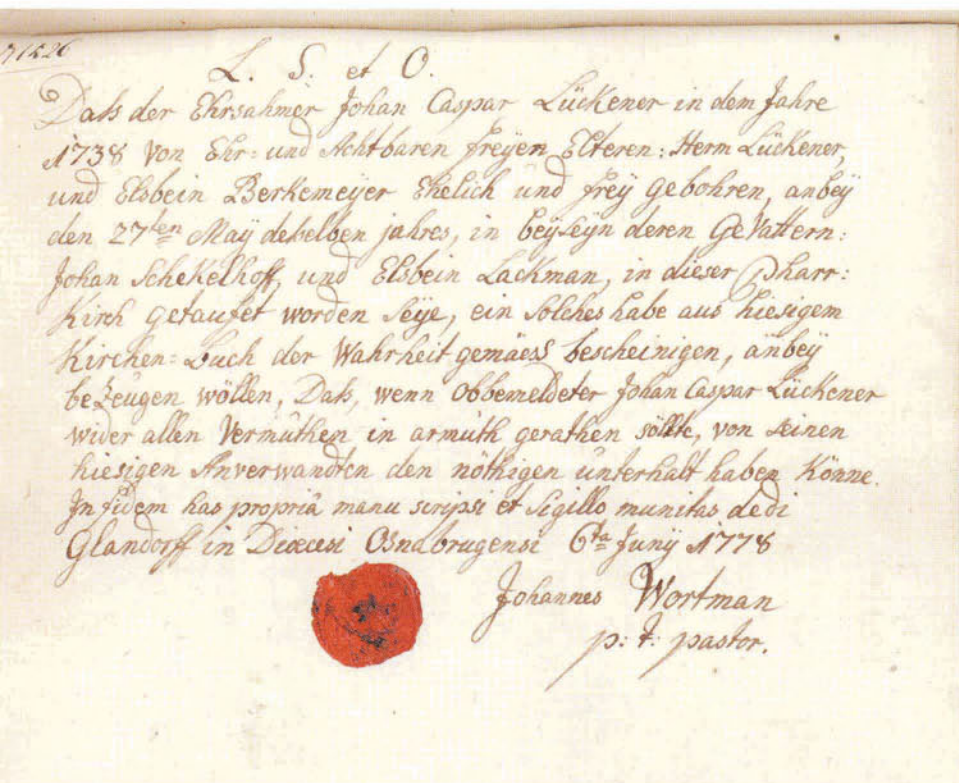 71526
L. S. et O.
Dass der Ehrsahmer Johan Caspar Lückener in dem Jahre
1738 von Ehr= und Achtbaren freyen Elteren: Herm Lückener,
und Elsbein Berkemeyer Ehelich und frey gebohren, anbey
den 27ten May desselben jahres, in beyseyn deren Gevattern:
Johan Schekelhoff, und Elsbein Lackman, in dieser Pharr:
Kirch getaufet worden seye, ein solches habe aus hiesigem
Kirchen=Buch der Wahrheit gemäess bescheinigen, anbey
bezeugen wöllen, Dass, wenn obbemeldeter Johan Caspar Lückener
wider allen Vermuthen in armuth gerathen söllte, von seinen
hiesigen Anverwandten den nöthigen unterhalt haben Könne.
In fidem has propriâ manu scripsi et Sigillo munitas dedi
Glandorff in Dioecesi Osnabrugensi 6ta Junij 1778
Johannes Wortman
p: t: pastor.